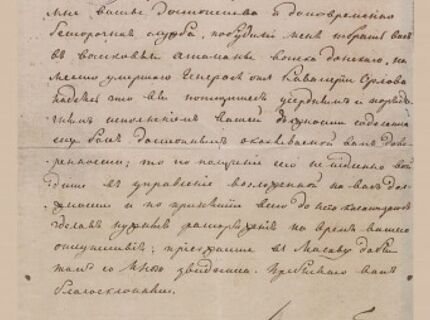 мне ваше достоинства и долговременно
безпорочная служба, побудили меня избрать васъ
въ войсковые атаманы войска донскаго, на
место умершаго Генерала отъ Кавалерiи Орлова
надеясь что вы потщитесь усерднымъ и
исполненiемъ вашей должности соделать
себя более достойнымъ оказываемой вамъ дове
ренности; то по полученiе сего не медленно вой
дите въ управленiе возложенной на васъ дол
жности и по принятiи всего до нея касающагося
сделавъ нужные распоряженiе на время вашего
отсутствiя; прiезжайте въ Москву дабы
тамъ со мною увидеться. Пребываю вамъ
благосклонный.